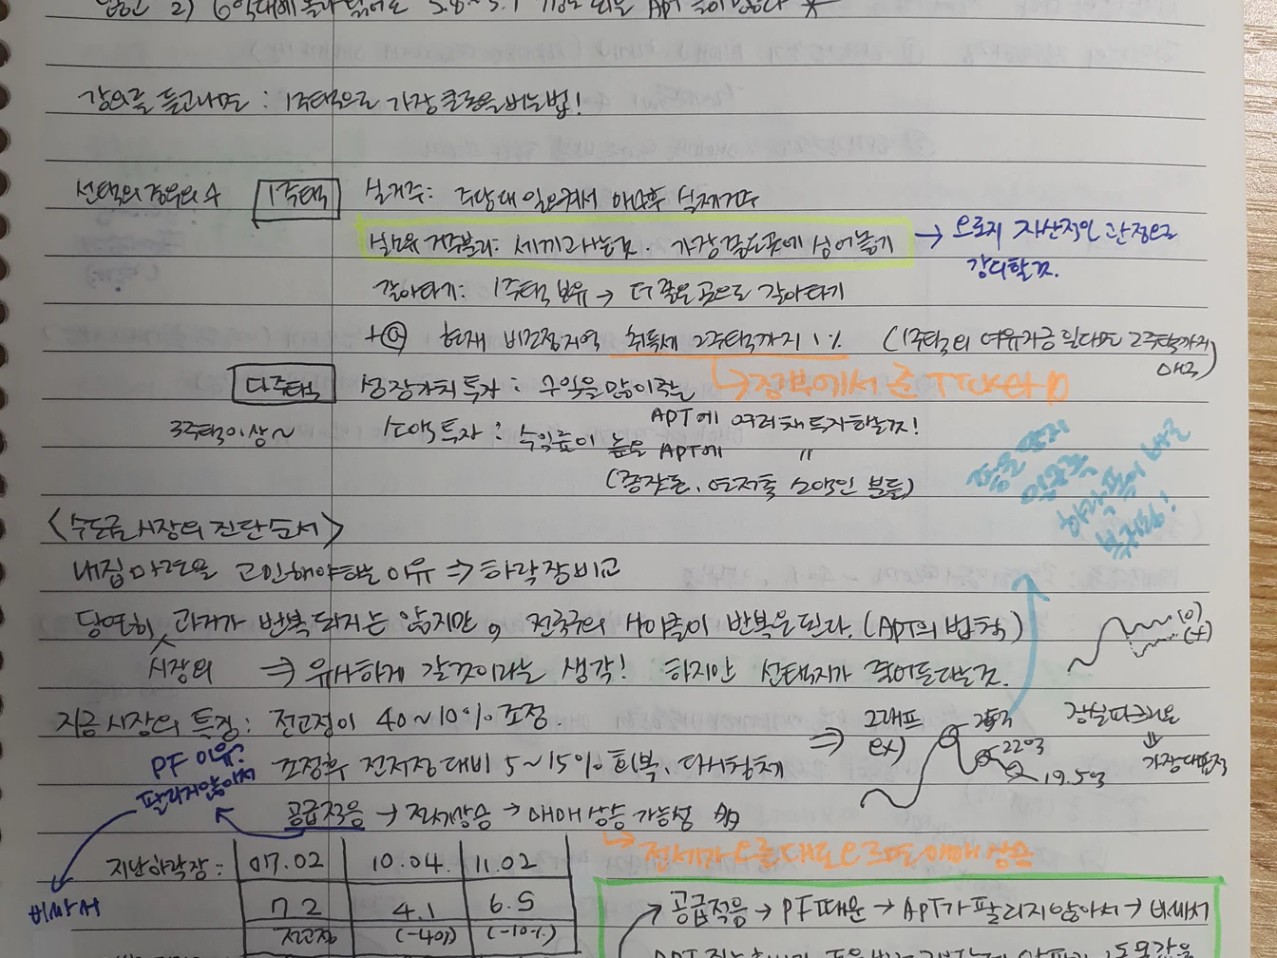 2) 6억대에
강의를 듣고나면 : 1주택으로 가장 큰 돈을 버는 법!
선택의 경우의 수 1주택 실거주: 매수후 실제거주
실거주 거주분리: 세끼고 사는것. 가장 좋은곳에 심어놓기 → 오로지 자산적인 관점으로
접근할것.
갈아타기: 1주택 보유 → 더 좋은 곳으로 갈아타기
현재 비조정지역 취득세 2주택까지 1% (1주택의 여유자금 된다면 2주택까지
OK)
↳ 정부에서 준 TICKET
다주택 성장가치 투자 : 수익을 많이 주는
APT에 여러채 투자할것!
3주택이상~ 소액투자 : 수익률이 높은 APT에 〃
(종잣돈, 여저축 소액인 분들)
하락
<수도권 시장의 진단 순서>
내집마련을 고민해야하는 이유 ⇒ 하락장 비교
당연히 과거가 반복되지는 않지만, 전국구의 사이클이 반복은 된다. (APT의 법칙) (O)
(X)
시장의 ⇒ 유사하게 갈것이라는 생각! 하지만 선택지가 줄어든다는것.
지금 시장의 특징: 전고점이 40~10% 조정. ⇒ ex) 25억 잠실파크리오
PF 이유? 22억
팔리지않아서 조정후 전저점 대비 5~15% 회복, 다시침체 19.5억 가장 대표적
공급적음 → 전세상승 → 매매 상승 가능성
↳ 전세가 오를대로 오르면 매매 상승
지난하락장: 07.02 10.04. 11.02
비싸서 7.2 4.1 6.5
전고점 (-40%) (-10%)
→ 공급적음 → PF때문 → APT가 팔리지않아서 → 비싸서